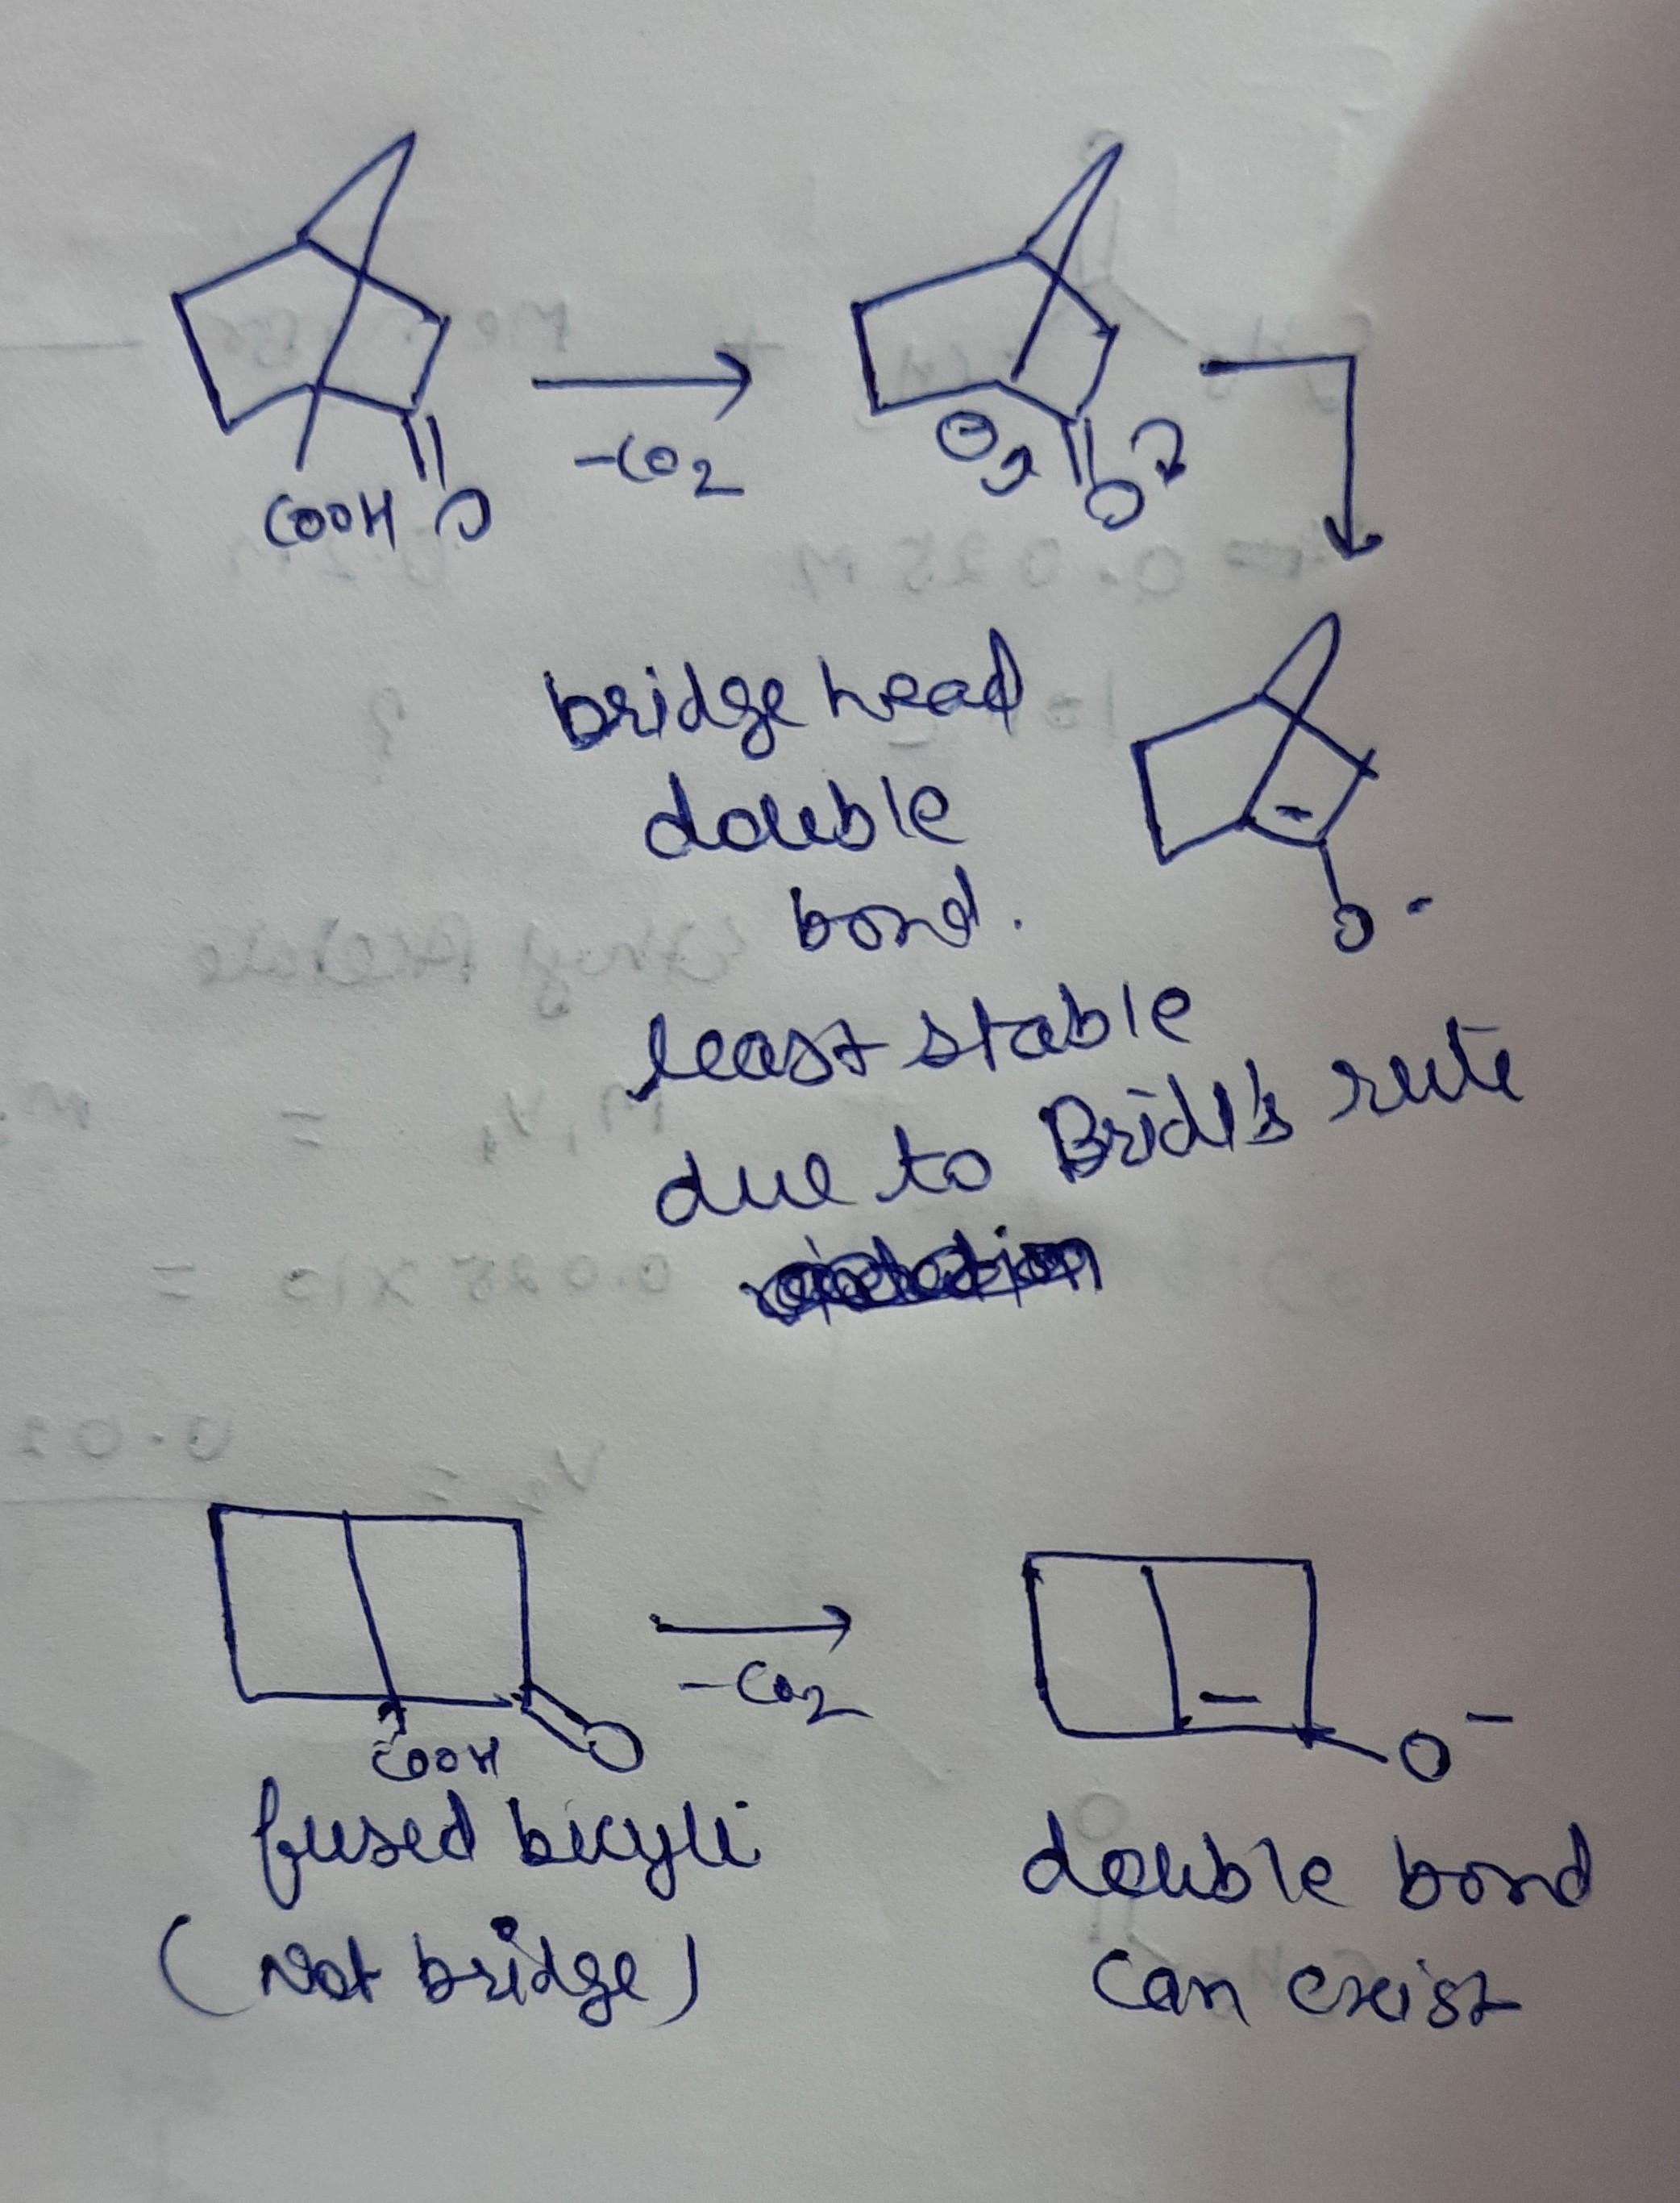 COOH O
-CO2
⊖ O
bridge head
double
bond.
O-
least stable
due to Bridl's rule
COOH O
-CO2
O-
fused bicyli
(Not bridge)
double bond
can exist